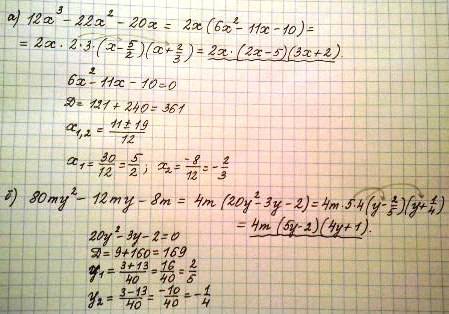 а) 12x³ - 22x² - 20x = 2x(6x² - 11x - 10) =
= 2x · 2 · 3 · (x - 5/2)(x + 2/3) = 2x · (2x - 5)(3x + 2).
6x² - 11x - 10 = 0
D = 121 + 240 = 361
x₁,₂ = (11 ± 19)/12
x₁ = 30/12 = 5/2; x₂ = -8/12 = -2/3
б) 80my² - 12my - 8m = 4m(20y² - 3y - 2) = 4m · 5 · 4(y - 2/5)(y + 1/4)
= 4m(5y - 2)(4y + 1).
20y² - 3y - 2 = 0
D = 9 + 160 = 169
y₁ = (3 + 13)/40 = 16/40 = 2/5
y₂ = (3 - 13)/40 = -10/40 = -1/4